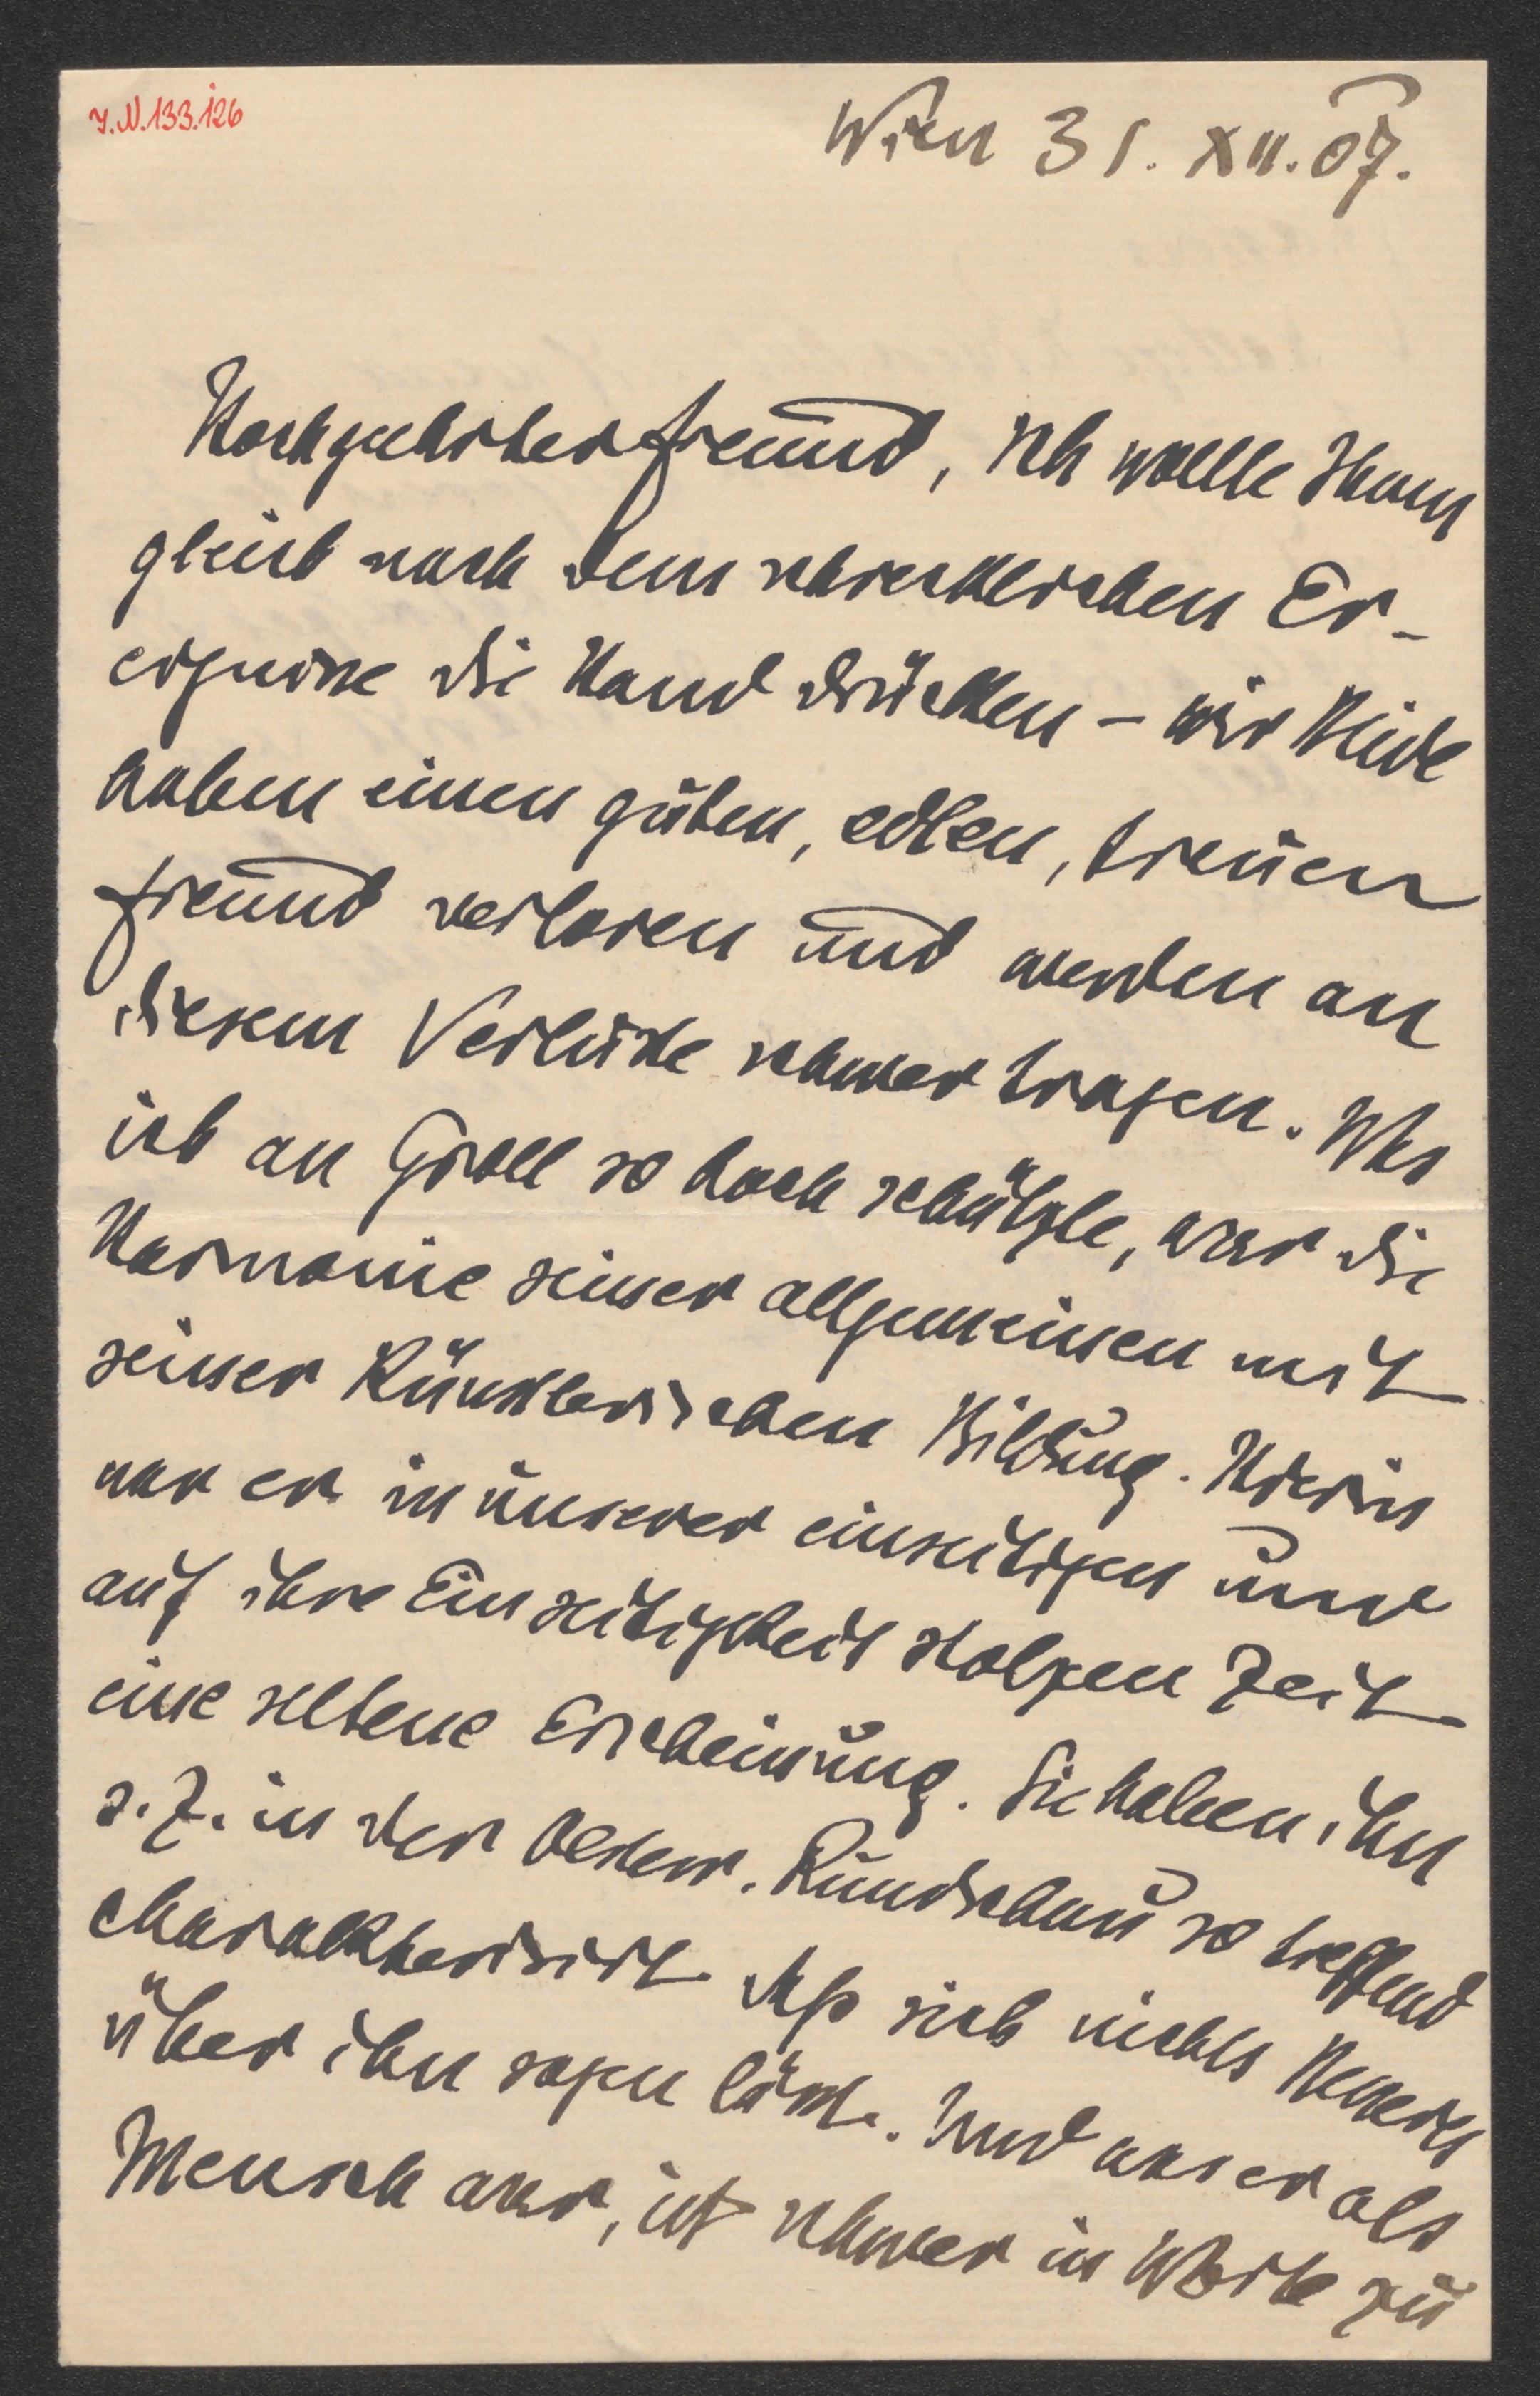 J.N.133.126
Wien 31. XII. 07.
Hochgeehrter Freund, ich wollte Ihnen
gleich nach dem schrecklichen Er-
eignisse die Hand drücken – wir Beide
haben einen guten, edlen, treuen
Freund verloren und werden an
diesem Verluste schwer tragen. Was
ich an Groll so hoch schätzte, war die
Harmonie seiner allgemeinen mit
seiner künstlerischen Bildung. Hierin
war er in unserer einseitigen und
auf ihre Einseitigkeit stolzen Zeit
eine seltene Erscheinung. Sie haben ihn
s. Z. in der Oesterr. Rundschau so treffend
charakterisirt daß sich nichts Neueres
über ihn sagen lässt. Und was er als
Mensch war, ist schwer in Worte zu